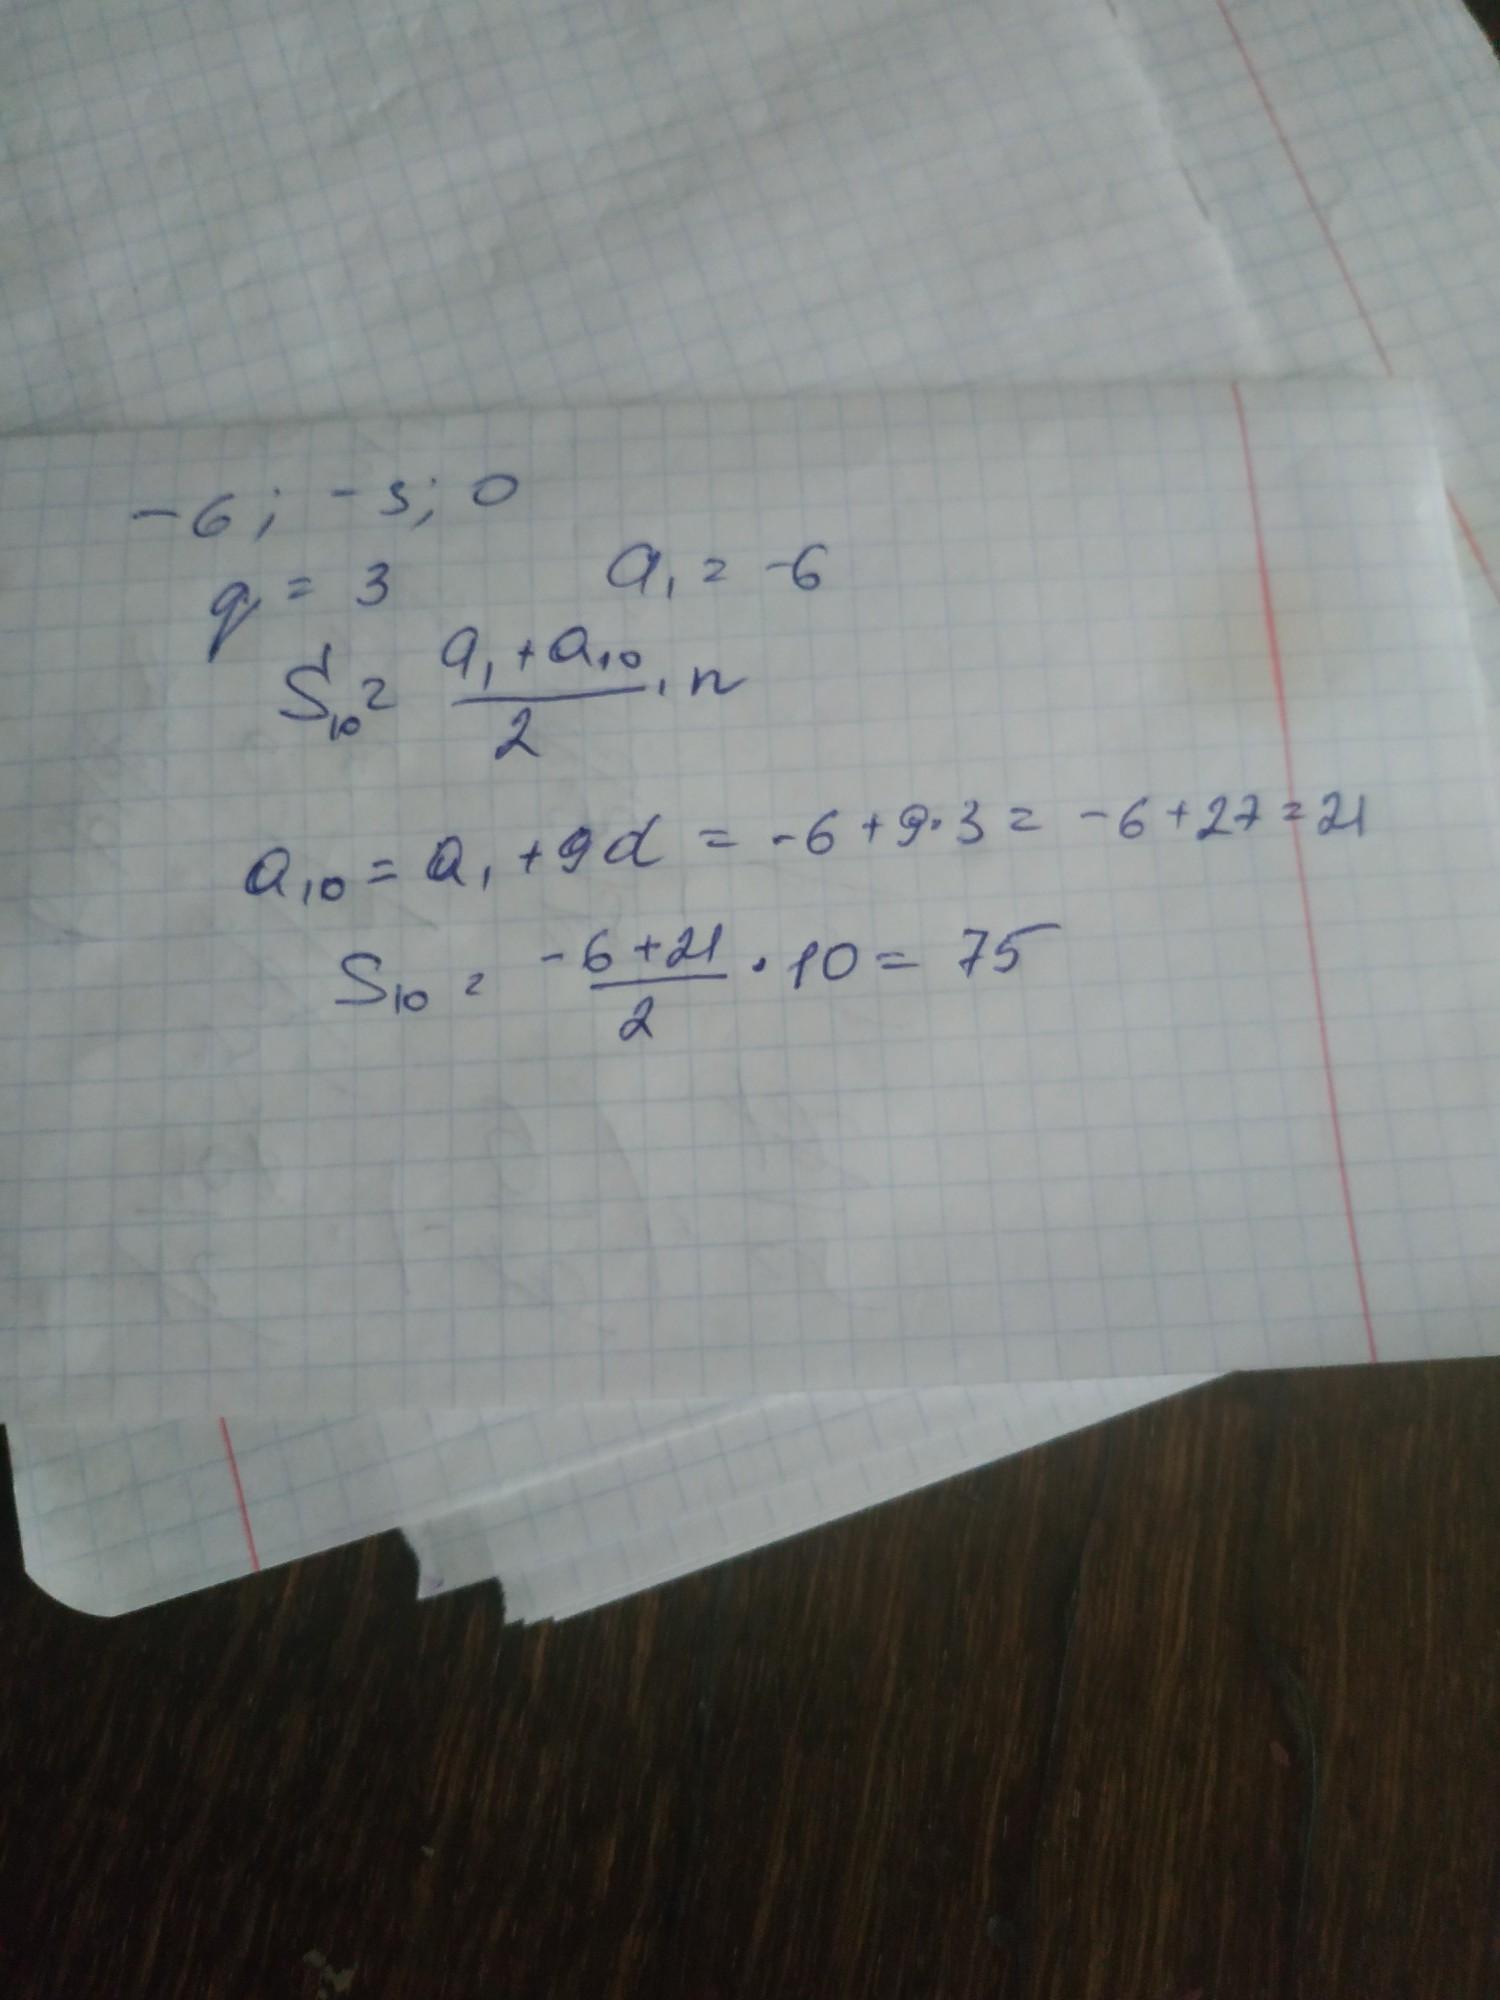 -6; -3; 0
q = 3 a₁ = -6
S₁₀ = (a₁ + a₁₀)/2 · n
a₁₀ = a₁ + 9d = -6 + 9·3 = -6 + 27 = 21
S₁₀ = (-6 + 21)/2 · 10 = 75